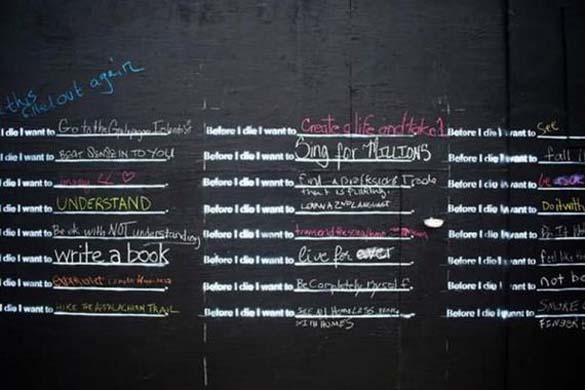 this
filled out again
I die I want to Go to the Galapagos Islands
I die I want to BEAT SENSE IN TO YOU
I die I want to
I die I want to UNDERSTAND
I die I want to Be ok with NOT understanding
I die I want to write a book
I die I want to
I die I want to HIKE THE APPALACHIAN TRAIL
Before I die I want to Create a life and take 1
Before I die I want to Sing for MILLIONS
Before I die I want to Find a professional Trade
that is fulfilling.
Before I die I want to LEARN A 2ND LANGUAGE
Before I die I want to
Before I die I want to live for ever
Before I die I want to Be Completely Myself
Before I die I want to SEE ALL HOMELESS
WITH HOMES
Before I die I want to see
Before I die I want to fall
Before I die I want to be
Before I die I want to Do it with
Before I die I want to
Before I die I want to feel like
Before I die I want to not b
Before I die I want to SMOKE